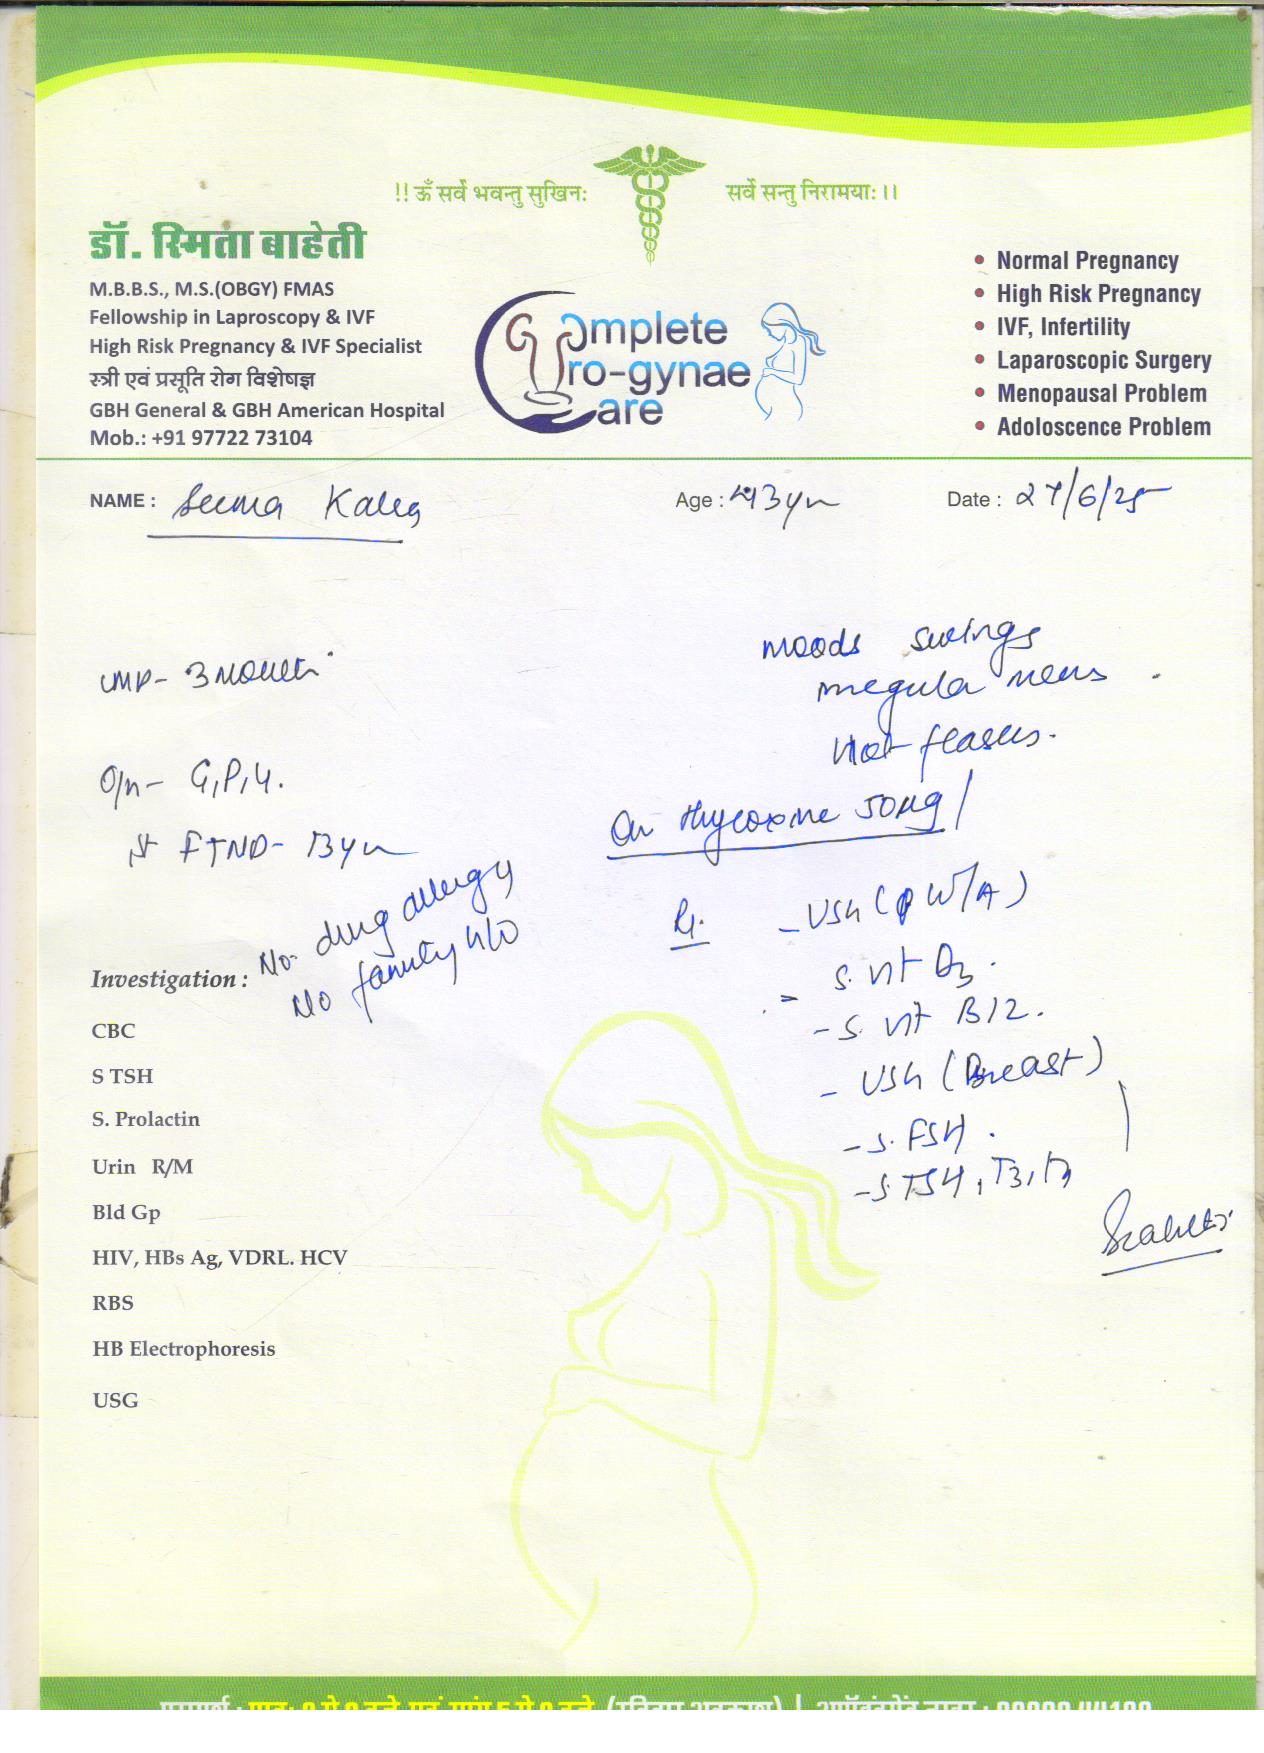 !! ॐ सर्वे भवन्तु सुखिनः सर्वे सन्तु निरामयाः ।।
डॉ. स्मिता बाहेती
M.B.B.S., M.S.(OBGY) FMAS
Fellowship in Laproscopy & IVF
High Risk Pregnancy & IVF Specialist
स्त्री एवं प्रसूति रोग विशेषज्ञ
GBH General & GBH American Hospital
Mob.: +91 97722 73104
Complete
Uro-gynae
Care
• Normal Pregnancy
• High Risk Pregnancy
• IVF, Infertility
• Laparoscopic Surgery
• Menopausal Problem
• Adoloscence Problem
NAME : Seema Age : 43yr Date : 27/6/25
moods swings
irregular mens
Hot flases.
LMP- 3 Month
O/h- G1P1
FTND- 13yr
No drug allergy
No family H/O
On thyroxine 50µg
Rx
- USG (W/A)
- S. Vit D3.
- S. Vit B12.
- USG (Breast)
- S. FSH.
- S. TSH, T3,
Investigation :
CBC
S TSH
S. Prolactin
Urin R/M
Bld Gp
HIV, HBs Ag, VDRL. HCV
RBS
HB Electrophoresis
USG